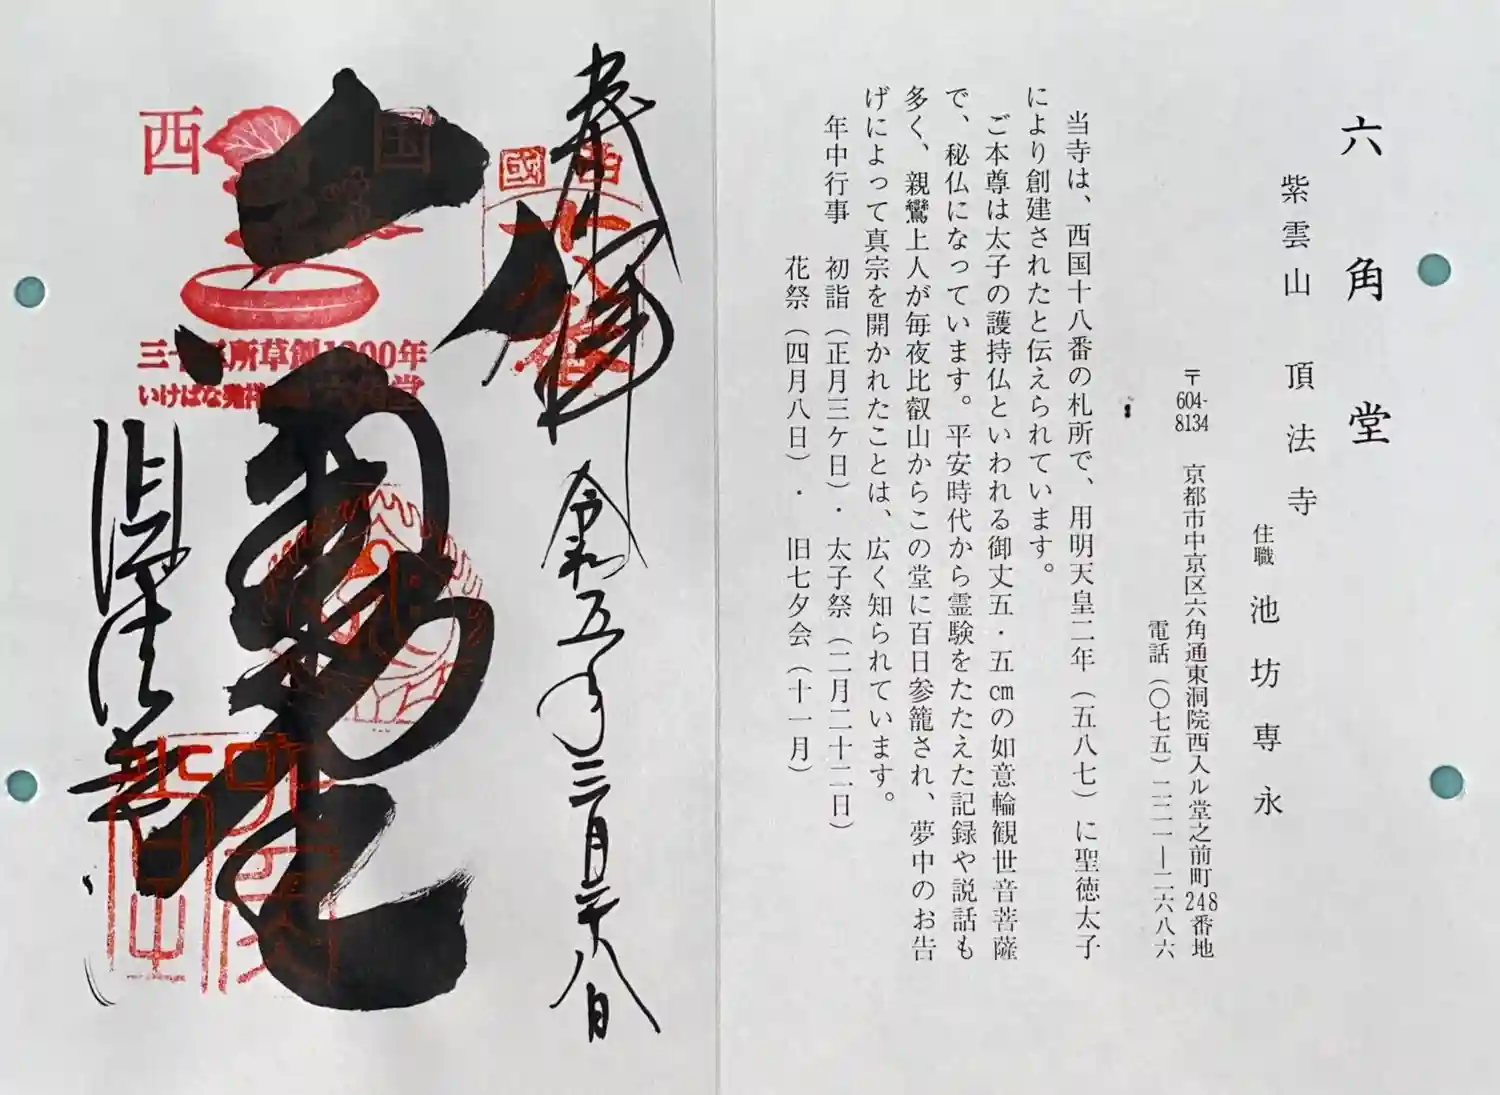 六角堂
紫雲山 頂法寺
住職 池坊専永
〒604-8134 京都市中京区六角通東洞院西入ル堂之前町248番地
電話（〇七五）二二一―二六八六
当寺は、西国十八番の札所で、用明天皇二年（五八七）に聖徳太子
により創建されたと伝えられています。
ご本尊は太子の護持仏といわれる御丈五・五cmの如意輪観世音菩薩
で、秘仏になっています。平安時代から霊験をたたえた記録や説話も
多く、親鸞上人が毎夜比叡山からこの堂に百日参籠され、夢中のお告
げによって真宗を開かれたことは、広く知られています。
年中行事 初詣（正月三ケ日）・太子祭（二月二十二日）
花祭（四月八日）・旧七夕会（十一月）
奉拝 令和五年三月二十八日
西國
六角堂
頂法寺
西国
三十三所草創1300年
いけばな発祥